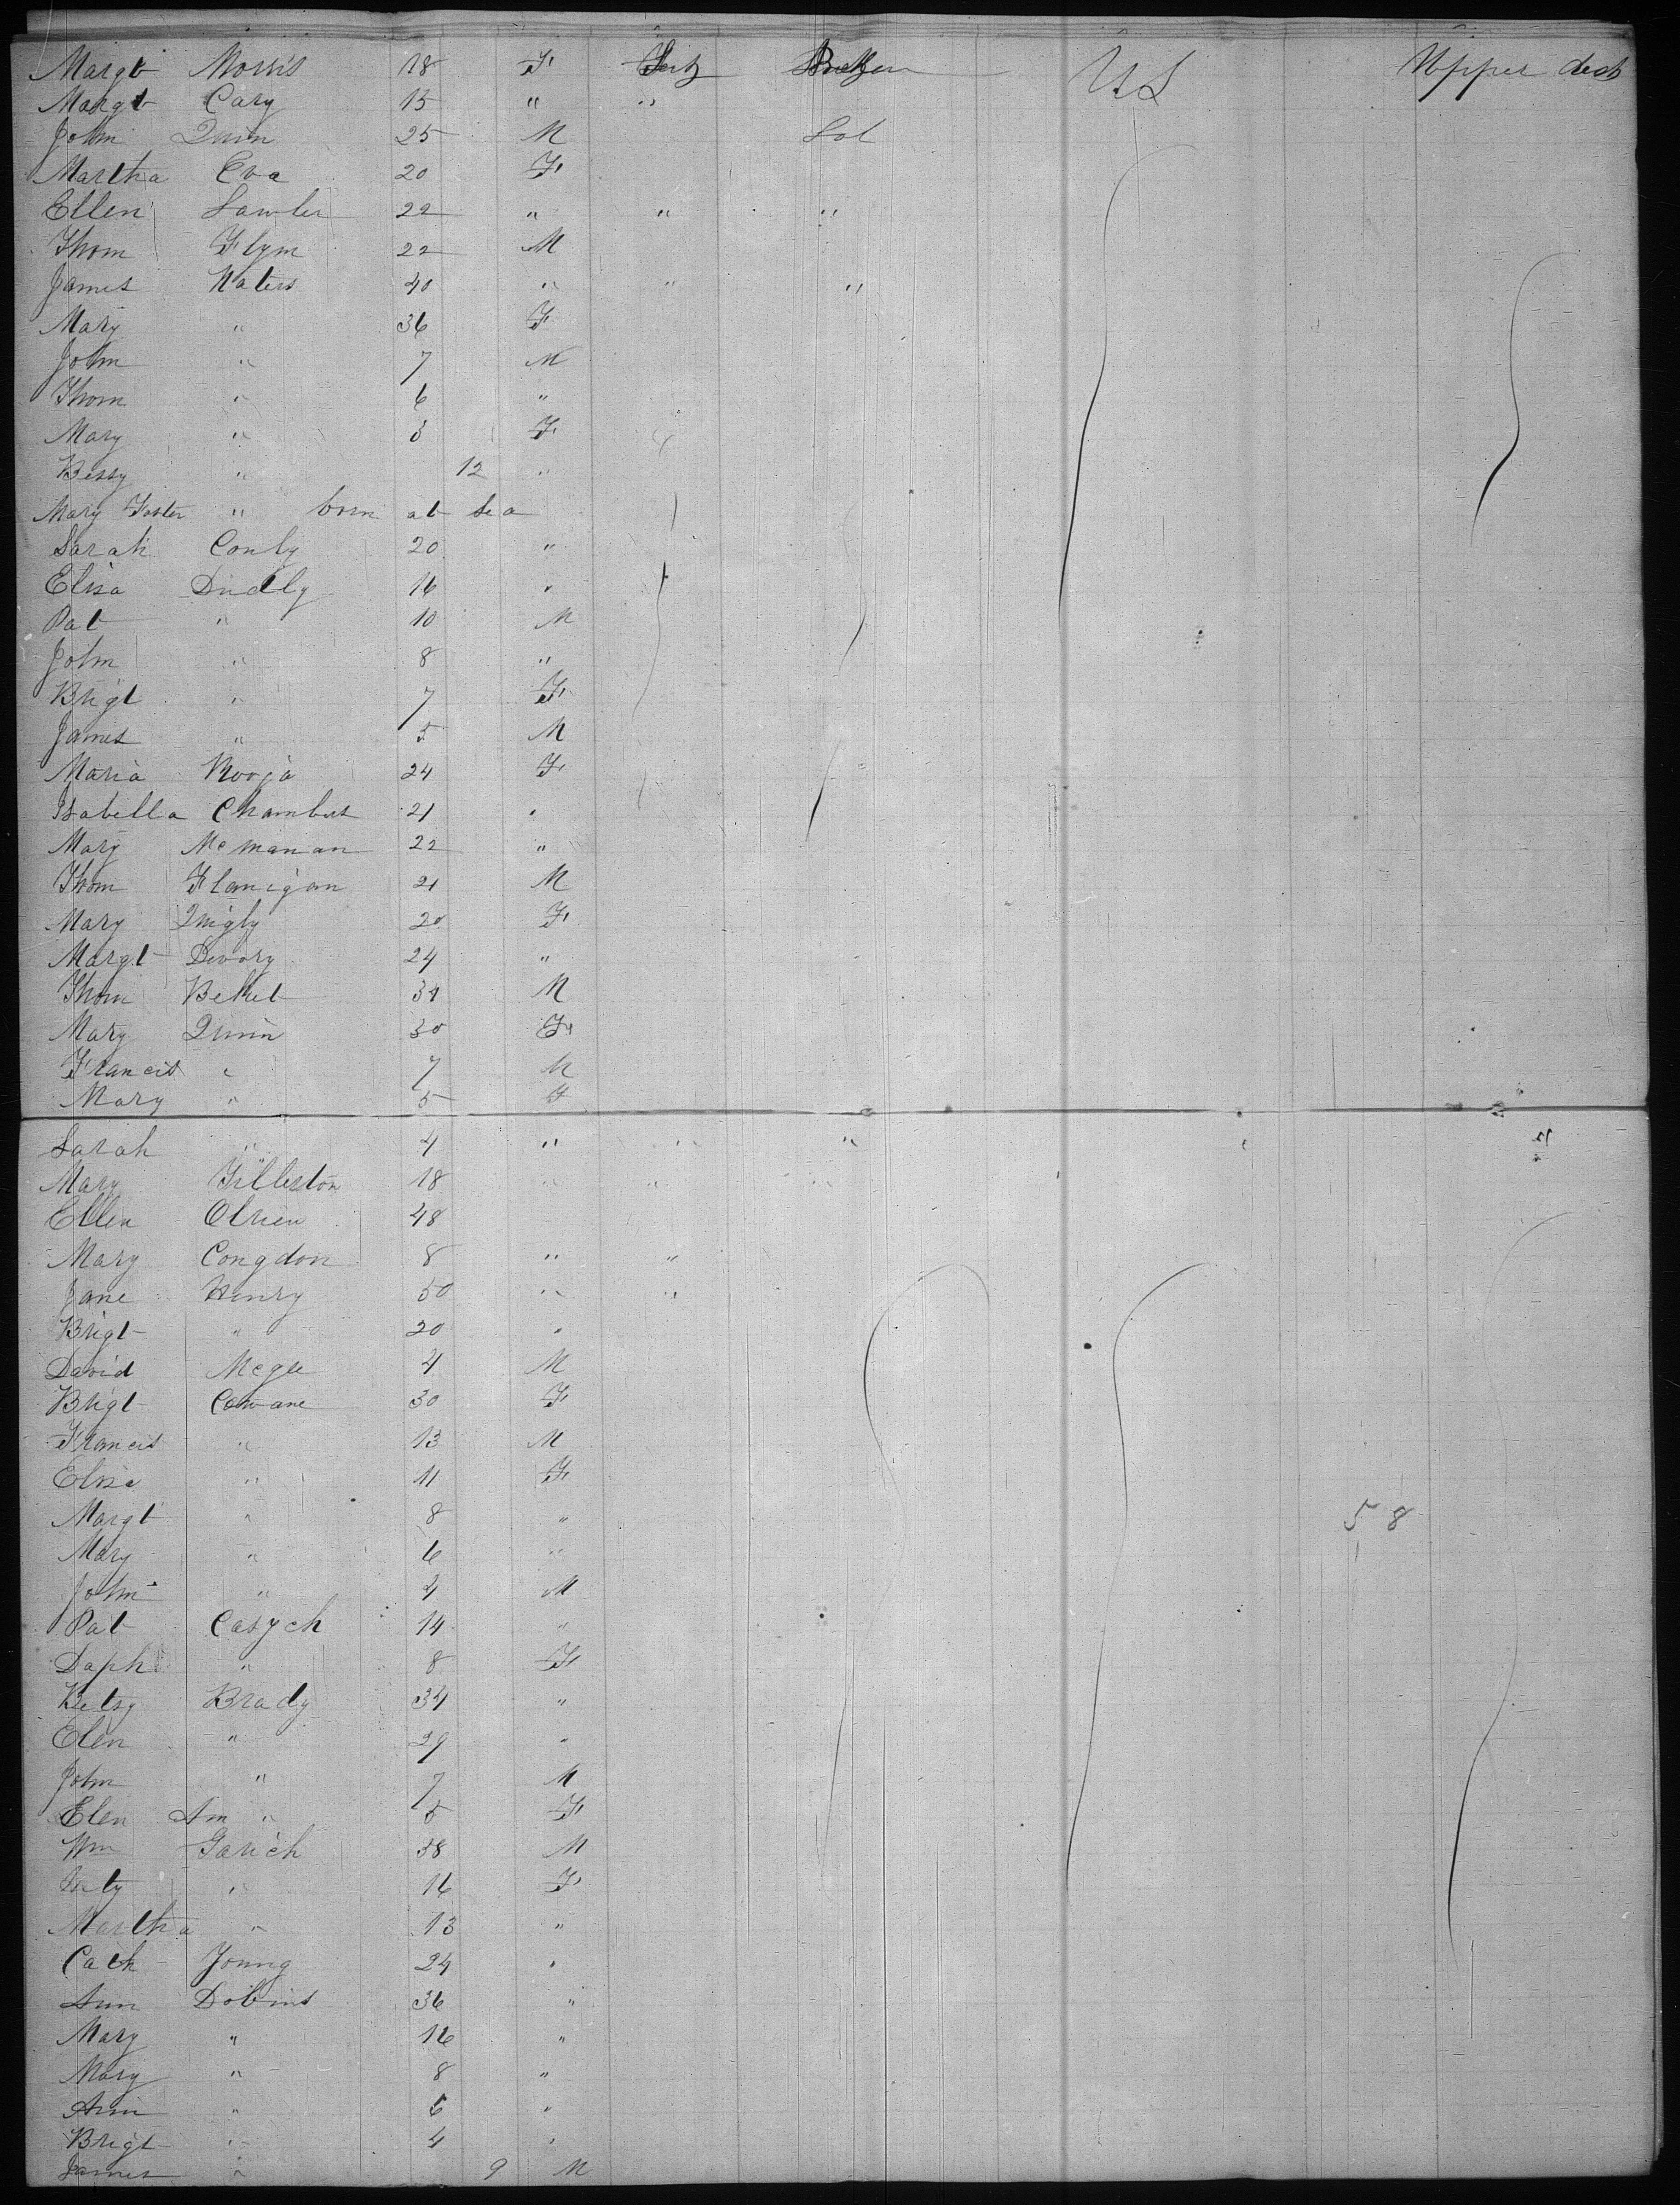 Margt Morris 18 F US Upper deck
Margt Cary 15 " "
John Quin 25 M
Martha Eva 20 F
Ellen Lawler 22 " " "
Thom Flynn 22 M
James Waters 40 " " "
Mary " 36 F
John " 7 M
Thom " 6 "
Mary " 3 F
Bessy " 12 "
Mary Foster " born at sea
Sarah Conly 20 "
Elisa Dudly 16 "
Pat " 10 M
John " 8 "
Brigt " 7 F
James " 5 M
Maria 24 F
Isabella Chambers 21 "
Mary McManan 22 "
Thom Flanigan 21 M
Mary Quigly 20 F
Margt Devory 24 "
Thom 31 M
Mary Quinn 30 F
Francis " 7 M
Mary " 5 F
Sarah " 4 " " " "
Mary 18 " " "
Ellen OBrien 48
Mary Congdon 8 " "
Jane Henry 50 " "
Brigt " 20 "
David Megee 4 M
Brigt Cowane 30 F
Francis " 13 M
Elisa " 11 F
Margt " 8 " 58
Mary " 6 "
John " 4 M
Pat Casych 14 "
Soph " 8 F
Betsy Brady 34 "
Elen " 29 "
John " 7 M
Elen Ann " 5 F
Wm Garich 38 M
" 16 F
Martha " 13 "
Cath Young 24 "
Ann Dobins 36 "
Mary " 16 "
Mary " 8 "
Ann " 6 "
Brigt " 4 "
James " 9 M